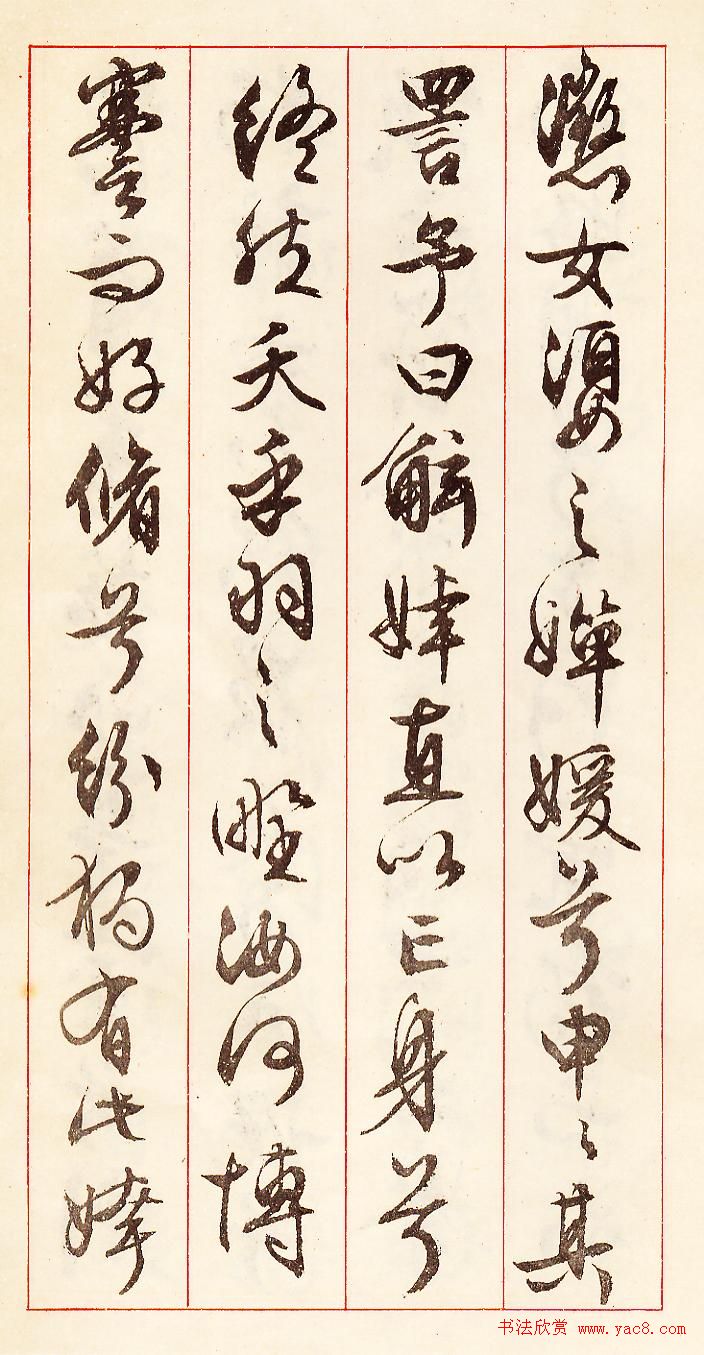 懲女媭之嬋媛兮申〻其
詈予曰鮌婞直以亡身兮
終然夭乎羽之野汝何博
謇而好脩兮紛獨有此姱
书法欣赏 www.yac8.com